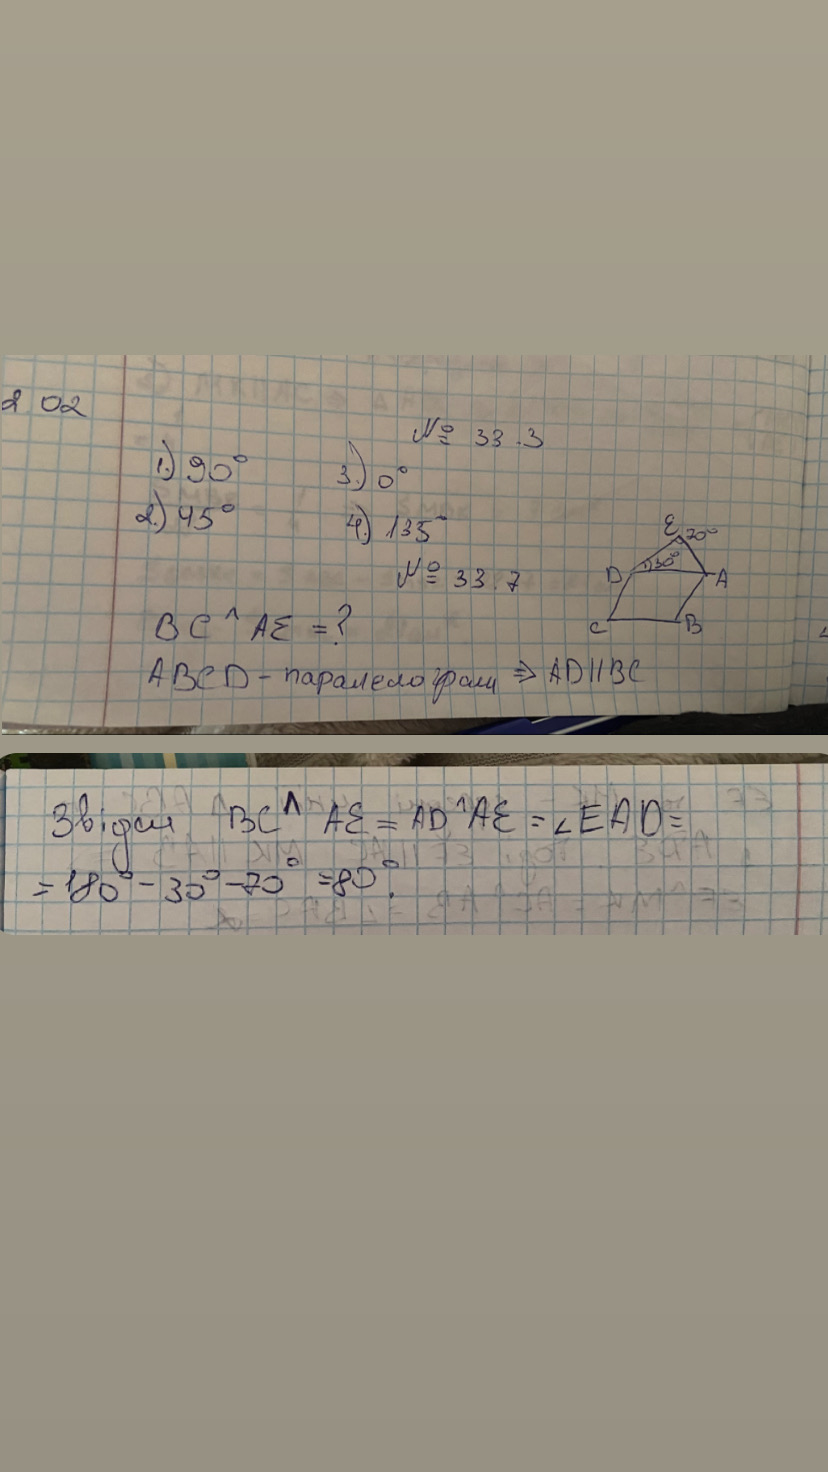 02
№ 33.3
1.) 90° 3.) 0°
2.) 45° 4.) 135°
№ 33.7
E 70°
D 30° A
C B
BC ^ AE = ?
ABCD - паралелограм ⇒ AD || BC
Звідси BC ^ AE = AD ^ AE = ∠EAD =
= 180° - 30° - 70° = 80°.